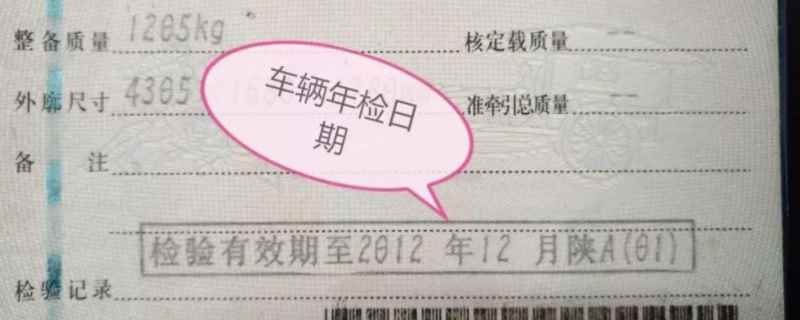 整备质量 1205kg 核定载质量 --
外廓尺寸 4305 准牵引总质量 --
车辆年检日
期
备 注
检验有效期至2012 年12 月陕A(01)
检验记录